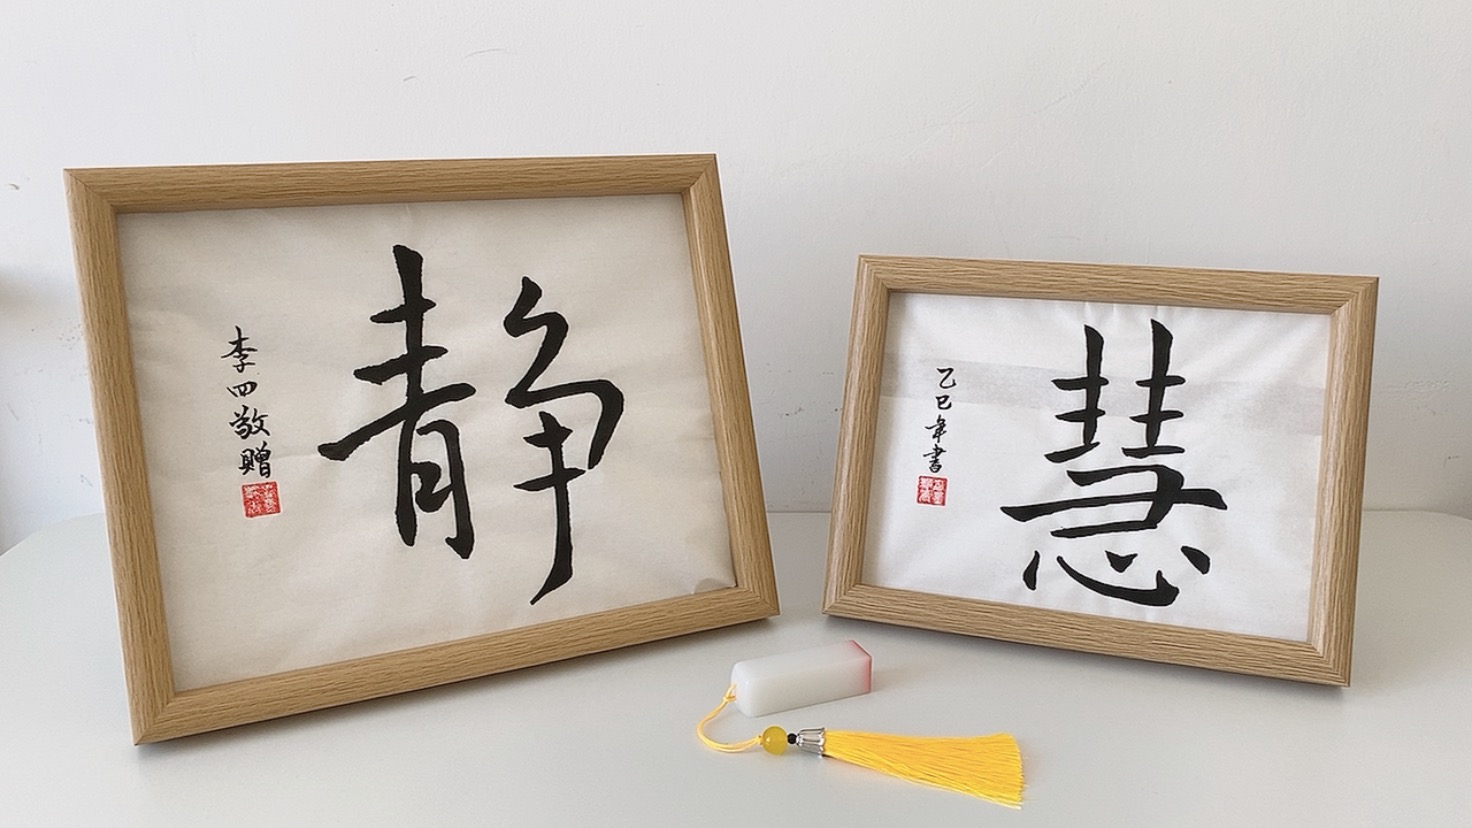 静
李四敬贈
慧
乙巳年書